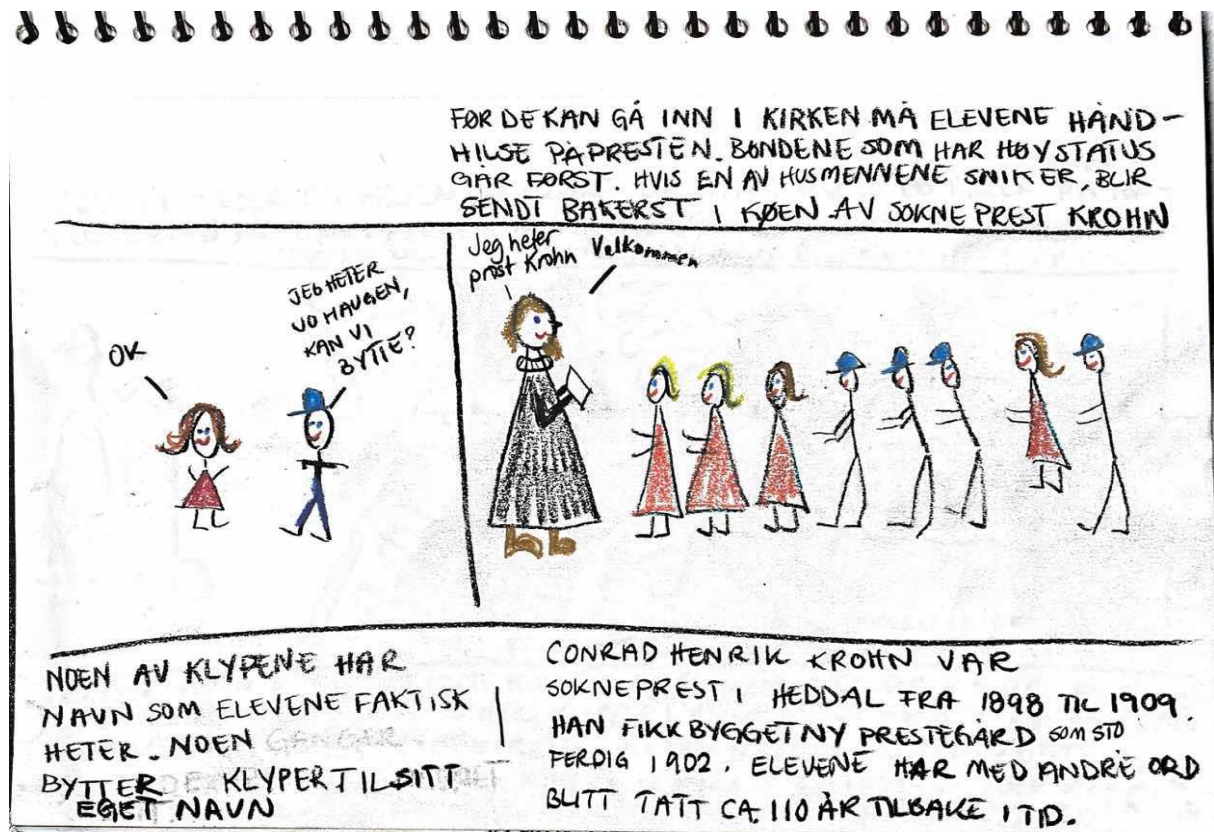 FØR DE KAN GÅ INN I KIRKEN MÅ ELEVENE HÅND-
HILSE PÅ PRESTEN. BØNDENE SOM HAR HØY STATUS
GÅR FØRST. HVIS EN AV HUSMENNENE SNIKER, BLIR
SENDT BAKERST I KØEN AV SOKNEPREST KROHN
OK
JEG HETER
HAUGEN,
KAN VI
BYTTE?
Jeg heter
prost Krohn
Velkommen
NOEN AV KLYPENE HAR
NAVN SOM ELEVENE FAKTISK
HETER. NOEN GANGER
BYTTER DE KLYPER TIL SITT
EGET NAVN
CONRAD HENRIK KROHN VAR
SOKNEPREST I HEDDAL FRA 1898 TIL 1909.
HAN FIKK BYGGET NY PRESTEGÅRD SOM STO
FERDIG 1902. ELEVENE HAR MED ANDRE ORD
BLITT TATT CA. 110 ÅR TILBAKE I TID.